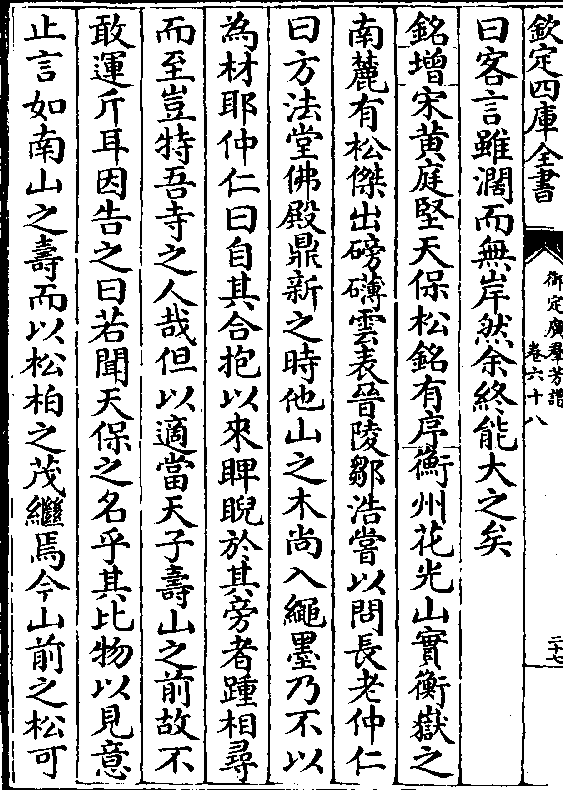 欽定四庫全書
御定廣羣芳譜
卷六十八
二十七
曰客言雖濶而無岸然余終能大之矣
銘增宋黄庭堅天保松銘有序衡州花光山實衡嶽之
南麓有松傑出磅礴雲表晉陵鄒浩嘗以問長老仲仁
曰方法堂佛殿鼎新之時他山之木尚入繩墨乃不以
為材耶仲仁曰自其合抱以來睥睨於其旁者踵相尋
而至豈特吾寺之人哉但以適當天子壽山之前故不
敢運斤耳因告之曰若聞天保之名乎其比物以見意
止言如南山之壽而以松柏之茂繼焉今山前之松可